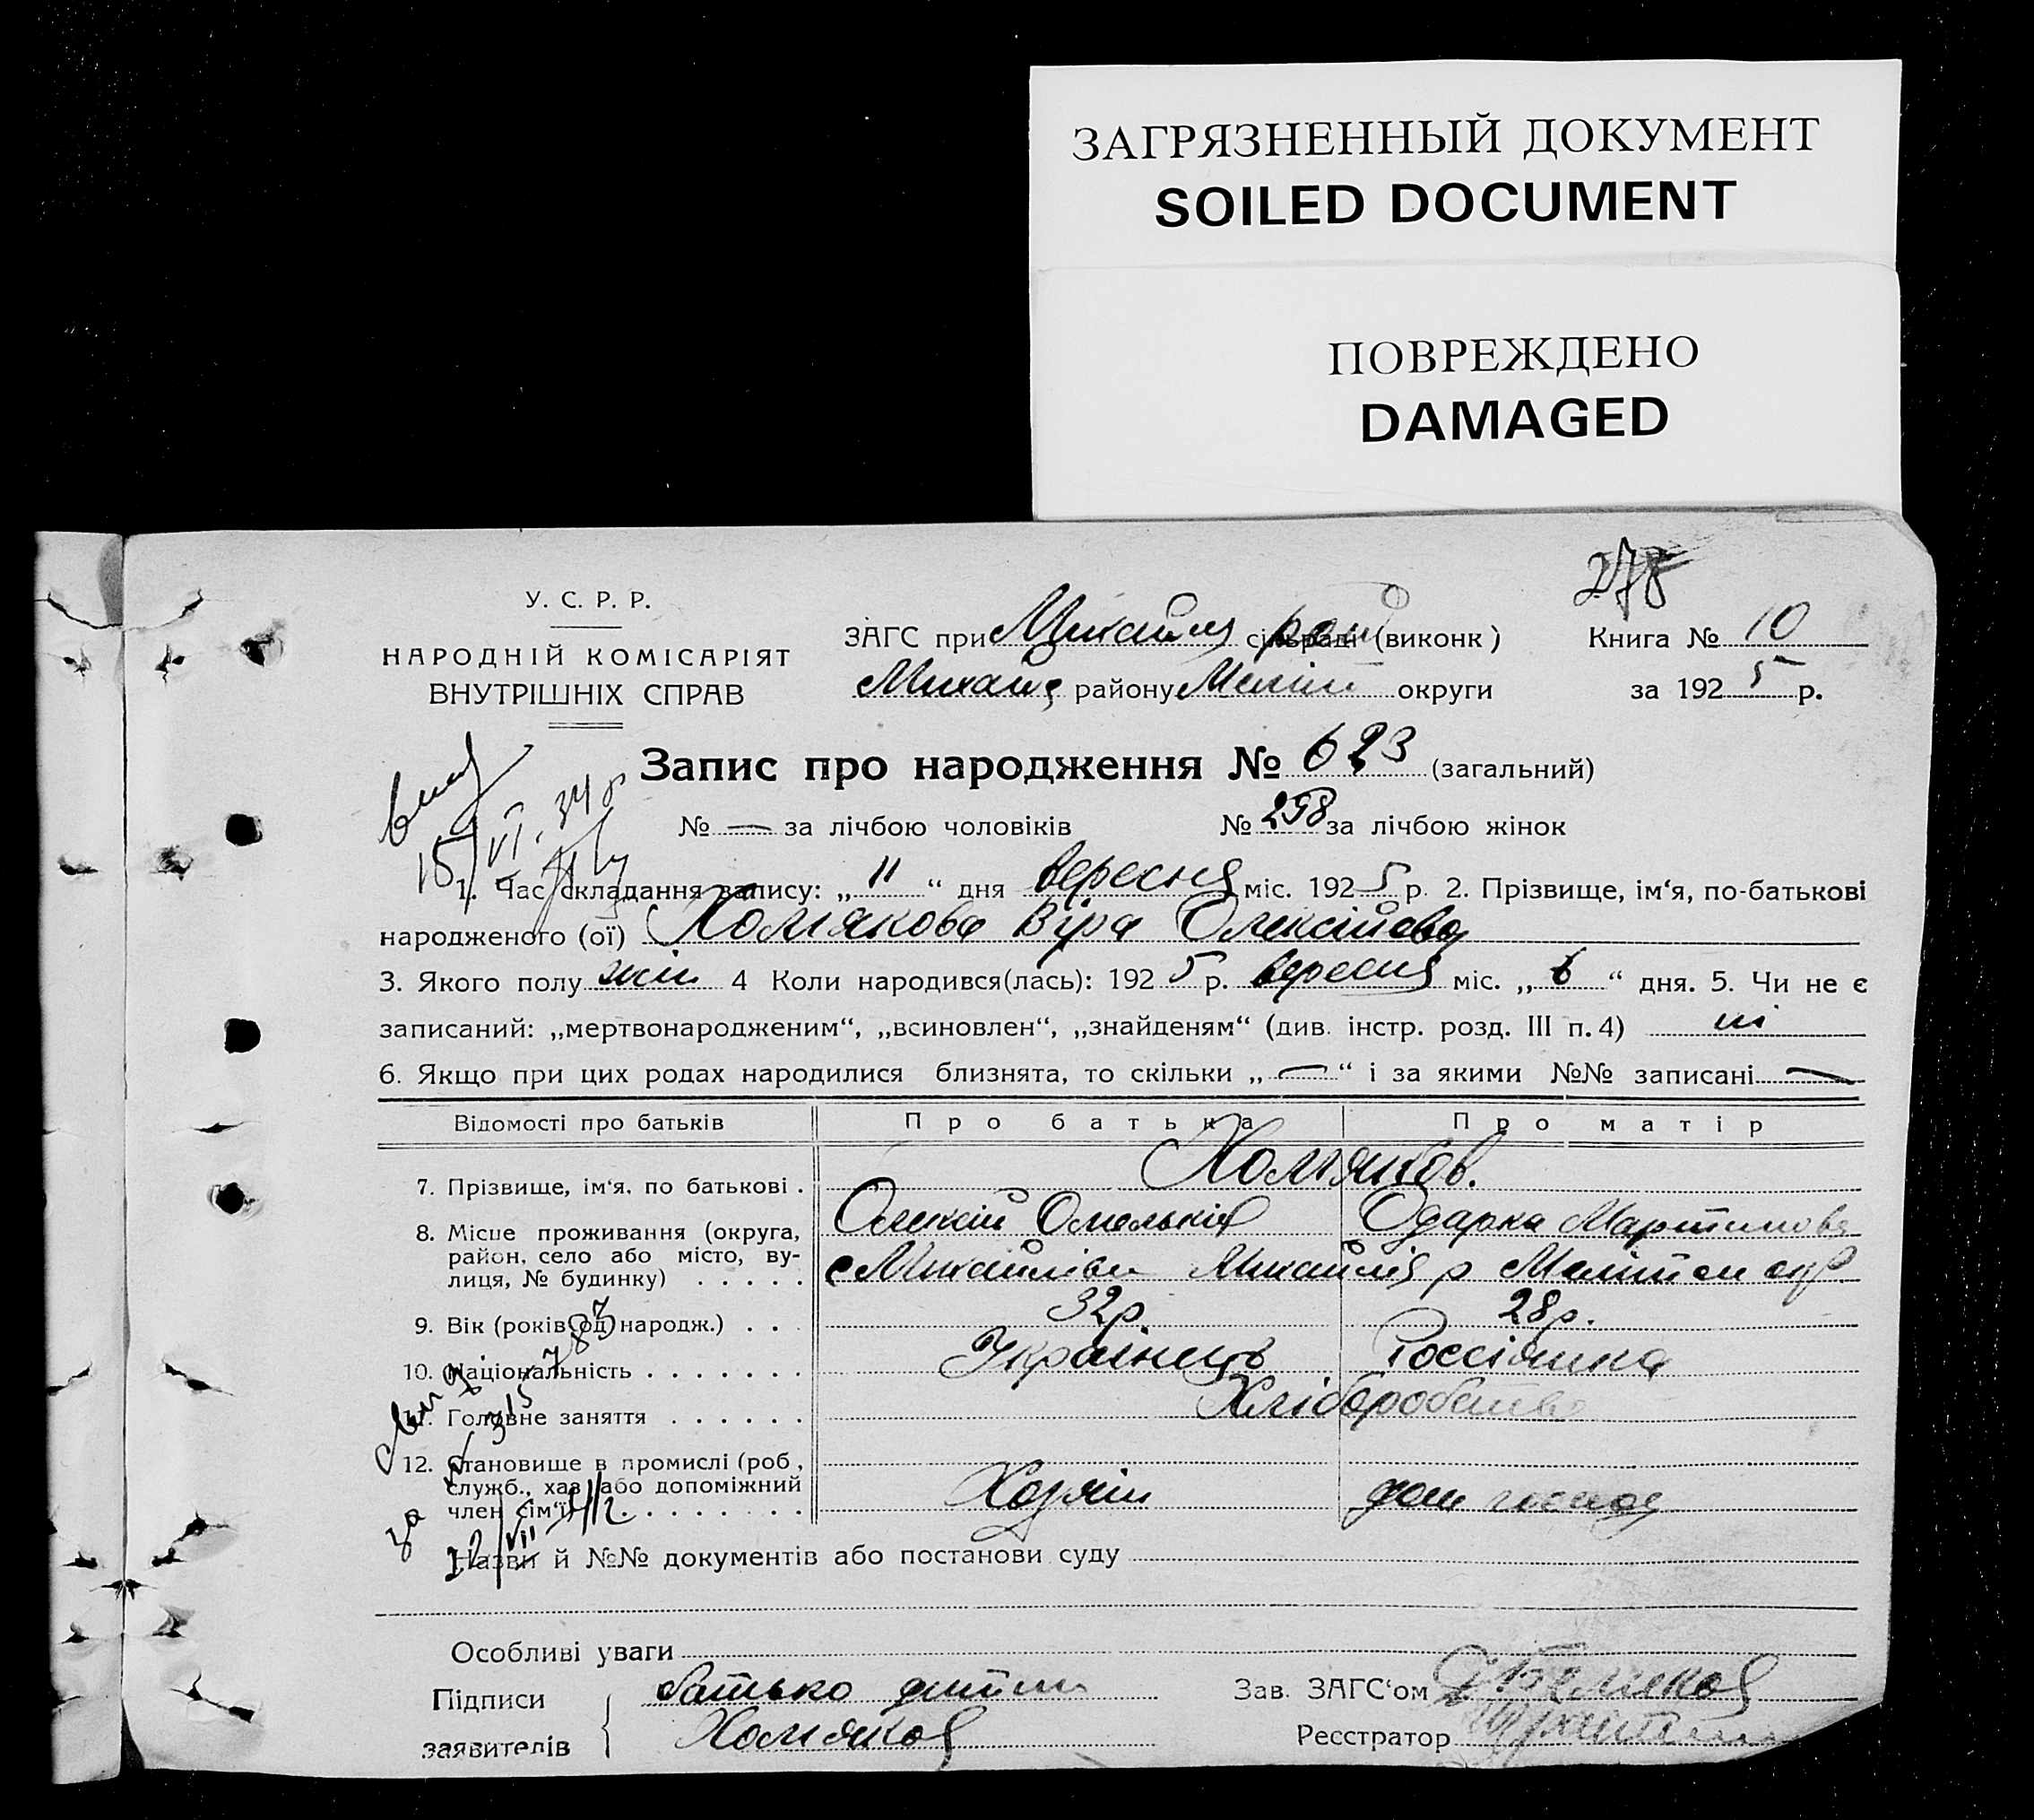 ЗАГРЯЗНЕННЫЙ ДОКУМЕНТ
SOILED DOCUMENT
ПОВРЕЖДЕНО
DAMAGED
278
У. С. Р. Р.
НАРОДНІЙ КОМІСАРІЯТ
ВНУТРІШНІХ СПРАВ
ЗАГС при Михайл рай сільраді (виконк) Книга № 10
Михайл району Меліт округи за 1925 р.
Запис про народження № 623 (загальний)
№ — за лічбою чоловіків № 298 за лічбою жінок
15/VI. 34 р
1. Час складання запису: „ 11 “ дня вересня міс. 1925 р. 2. Прізвище, ім‘я, по-батькові
народженого (ої) Хомякова Віра Олексійова
3. Якого полу жін 4 Коли народився(лась): 1925 р. вересня міс. „ 6 “ дня. 5. Чи не є
записаний: „мертвонародженим“, „всиновлен“, „знайденям“ (див. інстр. розд. III п. 4) ні
6. Якщо при цих родах народилися близнята, то скільки „ — “ і за якими №№ записані —
Відомості про батьків Про батька Про матір
7. Прізвище, ім‘я, по батькові . Хомяков.
8. Місце проживання (округа, Олексій Омельків Одарка Мартинова
район, село або місто, ву-
лиця, № будинку) . . . . . с Михайлівки Михайлів р Меліт окр
9. Вік (років од народж.) . . . 32р. 28р.
10. Національність . . . . . . . Українець Россіянка
11. Головне заняття . . . . . . Хліборобство
12. Становище в промислі (роб.,
служб., хаз. або допоміжний
член сім‘ї) . . . . . . . . Хозяїн дом господ
Назви й №№ документів або постанови суду
Особливі уваги
Підписи батько дитини Зав. ЗАГС‘ом
заявителів Хомяков Реєстратор